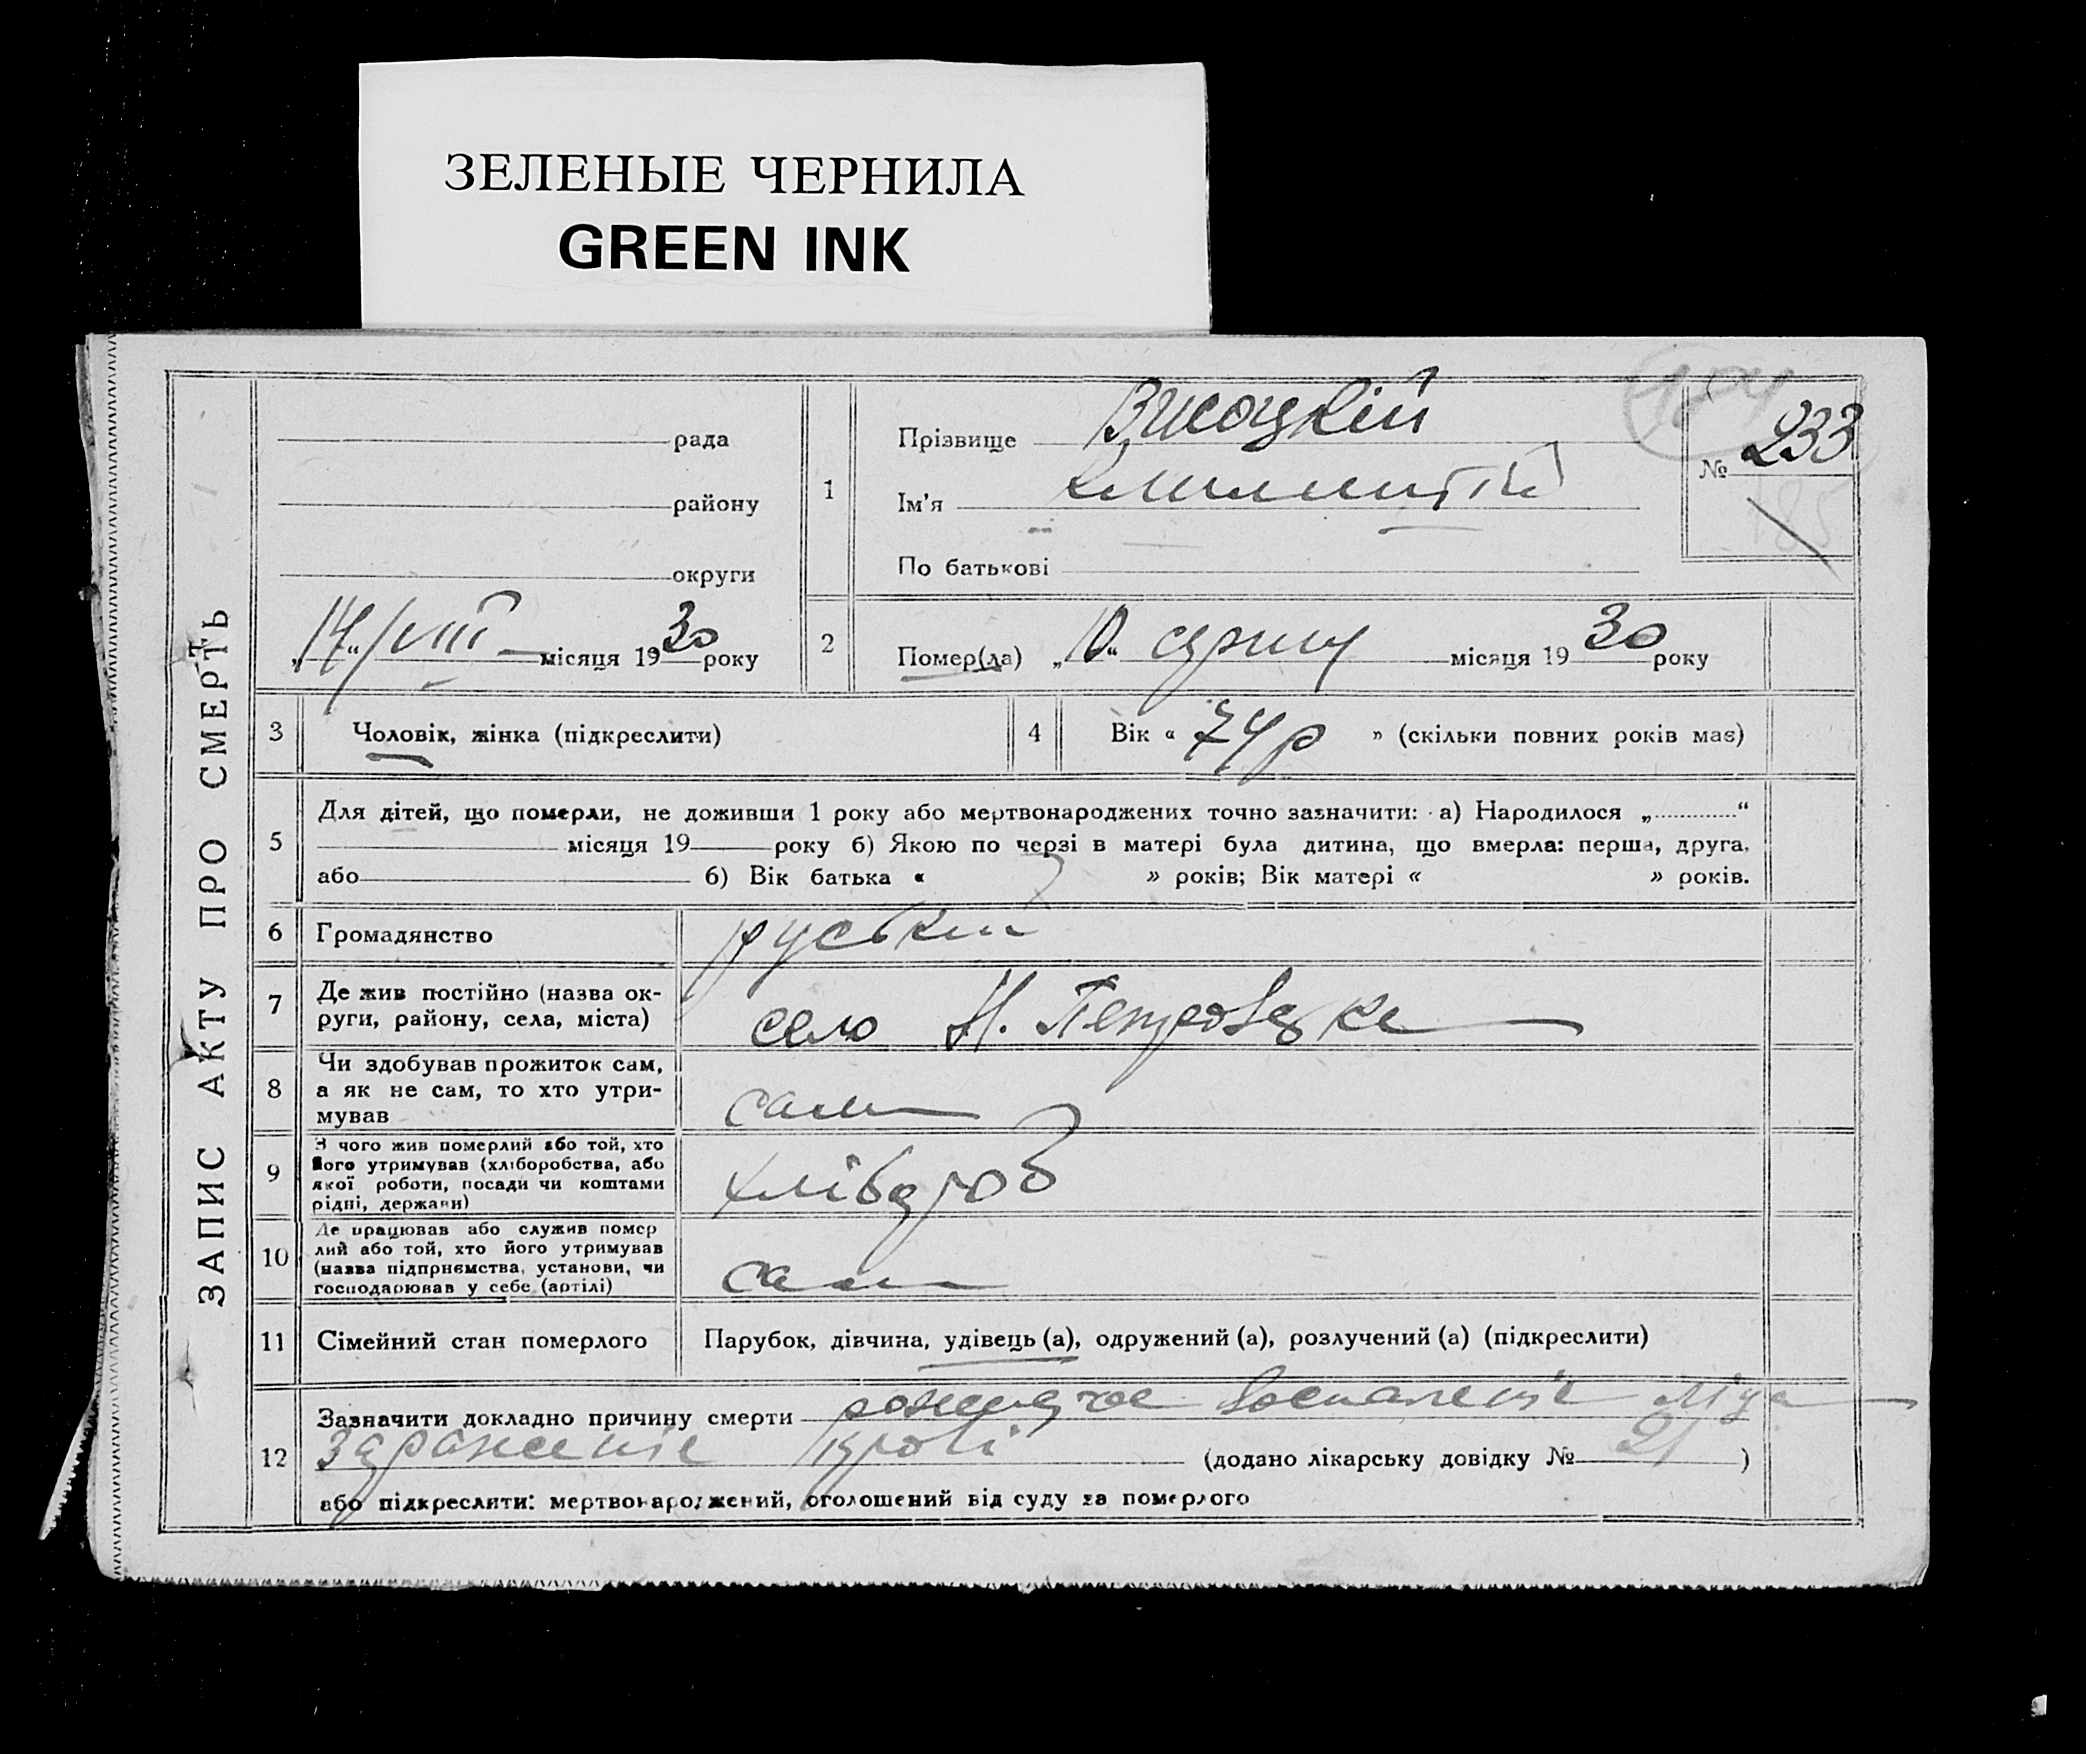 ЗЕЛЕНЫЕ ЧЕРНИЛА
GREEN INK
ЗАПИС АКТУ ПРО СМЕРТЬ
рада
району
округи
„14“/VIII місяця 1930 року
1
Прізвище Висоцкій
Ім'я
По батькові
184
№ 233
185
2
Помер(ла) „10“ серпня місяця 1930 року
3
Чоловік, жінка (підкреслити)
4
Вік « 74 р » (скільки повних років має)
5
Для дітей, що померли, не доживши 1 року або мертвонароджених точно зазначити: а) Народилося „ “
місяця 19 року б) Якою по черзі в матері була дитина, що вмерла: перша, друга,
або б) Вік батька « » років; Вік матері « » років.
6
Громадянство
руський
7
Де жив постійно (назва ок-
руги, району, села, міста)
село Н. Петровка
8
Чи здобував прожиток сам,
а як не сам, то хто утри-
мував
сам
9
З чого жив померлий або той, хто
його утримував (хліборобства, або
якої роботи, посади чи коштами
рідні, держави)
хлібороб
10
Де працював або служив помер
лий або той, хто його утримував
(назва підприємства, установи, чи
господарював у себе (артілі)
сам
11
Сімейний стан померлого
Парубок, дівчина, удівець (а), одружений (а), розлучений (а) (підкреслити)
12
Зазначити докладно причину смерти рожистое воспаленіе ліца
зараженіе крові (додано лікарську довідку № 21 )
або підкреслити: мертвонароджений, оголошений від суду за померлого